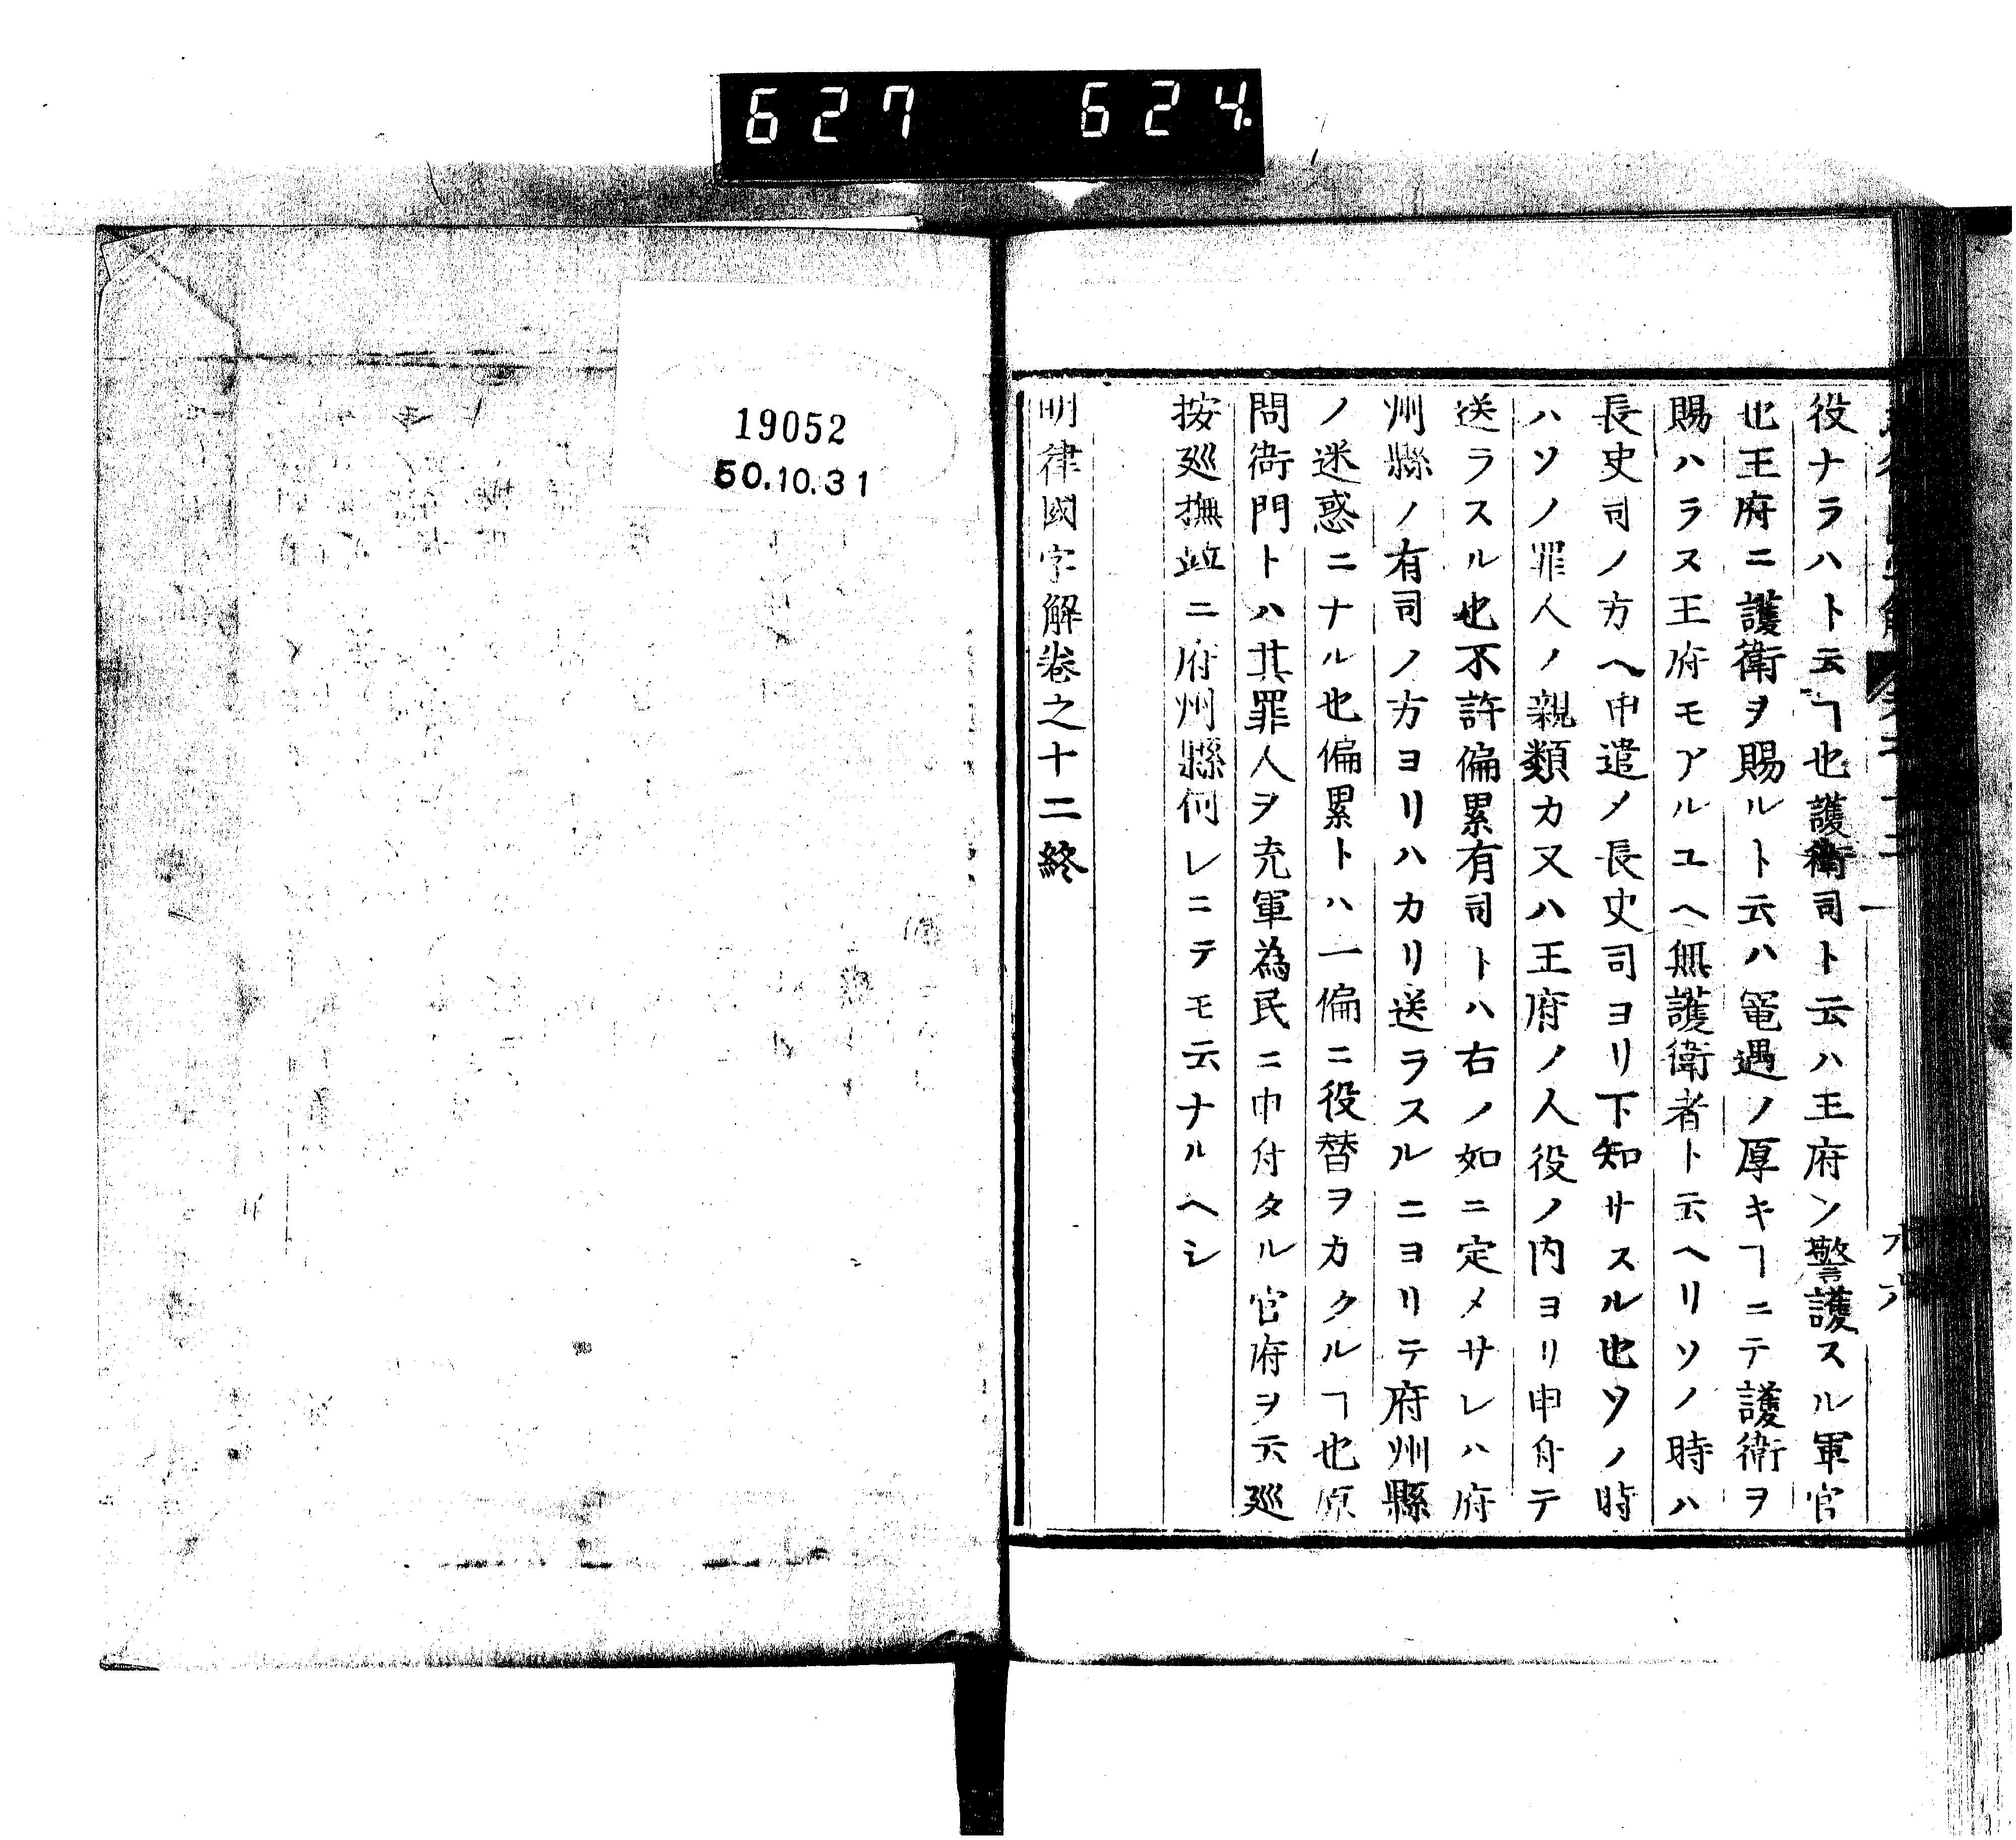 627 624
役ナラハト云ヿ也護衛司ト云ハ王府ン警護スル軍官
也王府ニ護衛ヲ賜ルト云ハ寵遇ノ厚キヿニテ護衛ヲ
賜ハラス王府モアルユヘ無護衛者ト云ヘリソノ時ハ
長史司ノ方ヘ申遣メ長史司ヨリ下知サスル也ソノ時
ハソノ罪人ノ親類カ又ハ王府ノ人役ノ内ヨリ申付テ
送ラスル也不許偏累有司トハ右ノ如ニ定メサレハ府
州縣ノ有司ノ方ヨリハカリ送ラスルニヨリテ府州縣
ノ迷惑ニナル也偏累トハ一偏ニ役替ヲカクルヿ也原
問衙門トハ其罪人ヲ充軍為民ニ申付タル官府ヲ云巡
按巡撫並ニ府州縣何レニテモ云ナルヘシ
明律國字解卷之十二終
19052
50.10.31